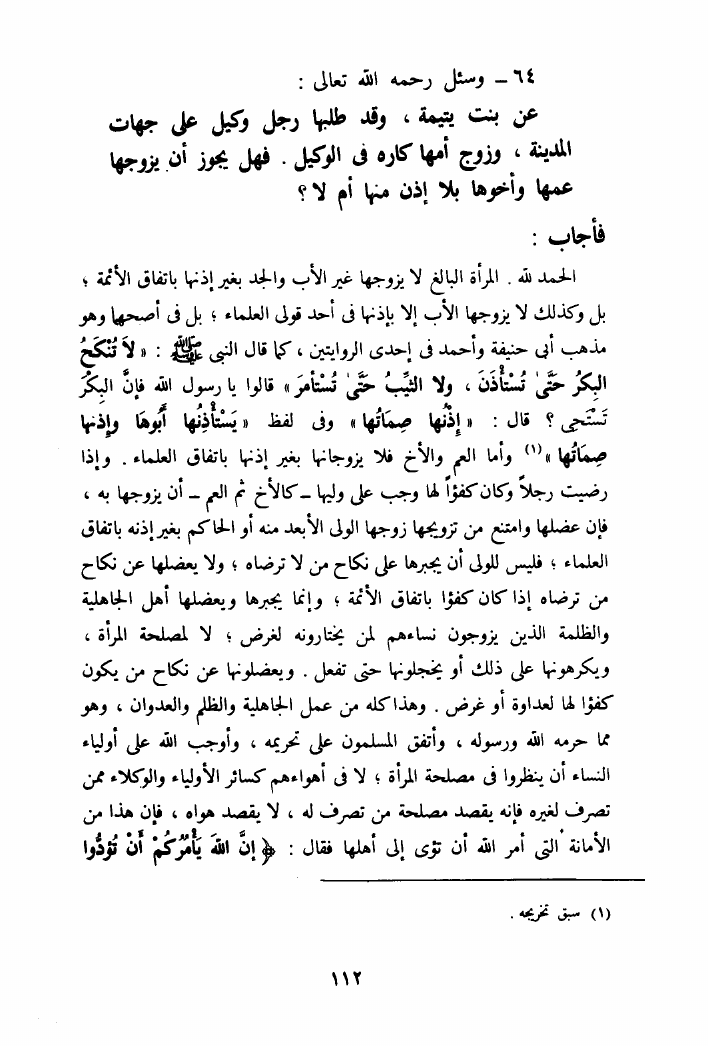 ٦٤ – وسئل رحمه الله تعالى :
عن بنت يتيمة ، وقد طلبها رجل وكيل على جهات
المدينة ، وزوج أمها كاره فى الوكيل . فهل يجوز أن يزوجها
عمها وأخوها بلا إذن منها أم لا ؟
فأجاب :
الحمد لله . المرأة البالغ لا يزوجها غير الأب والجد بغير إذنها باتفاق الأئمة ؛
بل وكذلك لا يزوجها الأب إلا بإذنها فى أحد قولى العلماء ؛ بل فى أصحها وهو
مذهب أبى حنيفة وأحمد فى إحدى الروايتين ، كما قال النبى ﷺ : « لاَ تُنْكَحُ
البِكرُ حَتَّىٰ تُسْتأذَنَ ، ولا الثيِّبُ حَتَّىٰ تُسْتأمرَ » قالوا يا رسول الله فإنَّ البِكْرَ
تَسْتَحِى ؟ قال : « إِذْنُها صِمَاتُها » وفى لفظ « يَسْتأْذِنُها أَبُوهَا وإِذنها
صِمَاتُها » (١) وأما العم والأخ فلا يزوجانها بغير إذنها باتفاق العلماء . وإذا
رضيت رجلاً وكان كفؤاً لها وجب على وليها – كالأخ ثم العم – أن يزوجها به ،
فإن عضلها وامتنع من تزويجها زوجها الولى الأبعد منه أو الحاكم بغير إذنه باتفاق
العلماء ؛ فليس للولى أن يجبرها على نكاح من لا ترضاه ؛ ولا يعضلها عن نكاح
من ترضاه إذا كان كفؤا باتفاق الأئمة ؛ وإنما يجبرها ويعضلها أهل الجاهلية
والظلمة الذين يزوجون نساءهم لمن يختارونه لغرض ؛ لا لمصلحة المرأة ،
ويكرهونها على ذلك أو يخجلونها حتى تفعل . ويعضلونها عن نكاح من يكون
كفؤا لها لعداوة أو غرض . وهذا كله من عمل الجاهلية والظلم والعدوان ، وهو
مما حرمه الله ورسوله ، وأتفق المسلمون على تحريمه ، وأوجب الله على أولياء
النساء أن ينظروا فى مصلحة المرأة ؛ لا فى أهواءهم كسائر الأولياء والوكلاء ممن
تصرف لغيره فإنه يقصد مصلحة من تصرف له ، لا يقصد هواه ، فإن هذا من
الأمانة التى أمر الله أن تؤى إلى أهلها فقال : ﴿ إنَّ اللهَ يَأْمُرُكُمْ أَنْ تُؤدُّوا
(١) سبق تخريجه .
١١٢